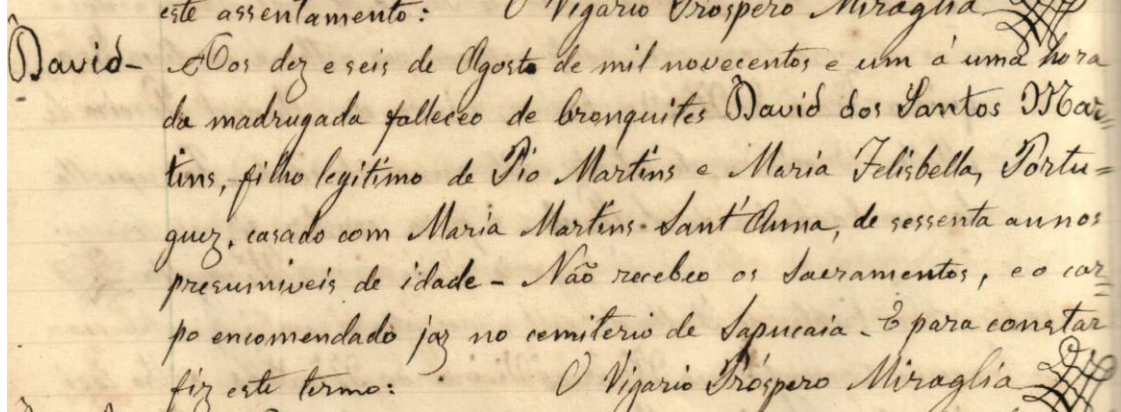 este assentamento: O Vigario Prospero Miraglia
David - Aos dez e seis de Agosto de mil novecentos e um á uma hora
da madrugada falleceo de bronquites David dos Santos Mar=
tins, filho legitimo de Pio Martins e Maria Felisbella, Portu=
guez, casado com Maria Martins Sant'Anna, de sessenta annos
presumiveis de idade - Não recebeo os Sacramentos, e o cor=
po encomendado jaz no cemiterio de Sapucaia - E para constar
fiz este termo: O Vigario Próspero Miraglia